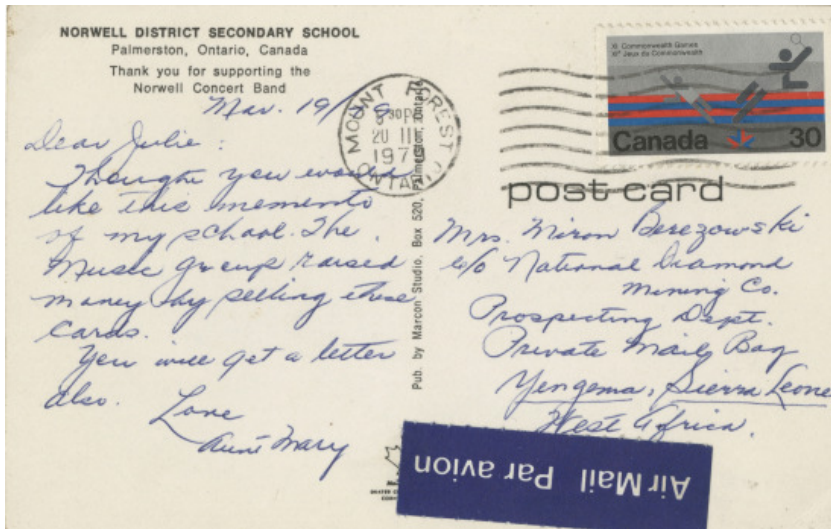 NORWELL DISTRICT SECONDARY SCHOOL
Palmerston, Ontario, Canada
Thank you for supporting the
Norwell Concert Band
Mar. 19/79
Dear Julie:
Thought you would
like this memento
of my school. The
Music group raised
money by selling these
cards.
You will get a letter
also.
Love
Aunt Mary
Pub. by Marcon Studio, Box 520, Palmerston, Ontario
MOUNT FOREST
PM
20 III
197
ONTARIO
XI Commonwealth Games
XIes Jeux du Commonwealth
Canada 30
post card
Mrs. Miron Berezowski
c/o National Diamond
Mining Co.
Prospecting Dept.
Private Mail Bag
Yengema, Sierra Leone
West Africa.
Air Mail Par avion